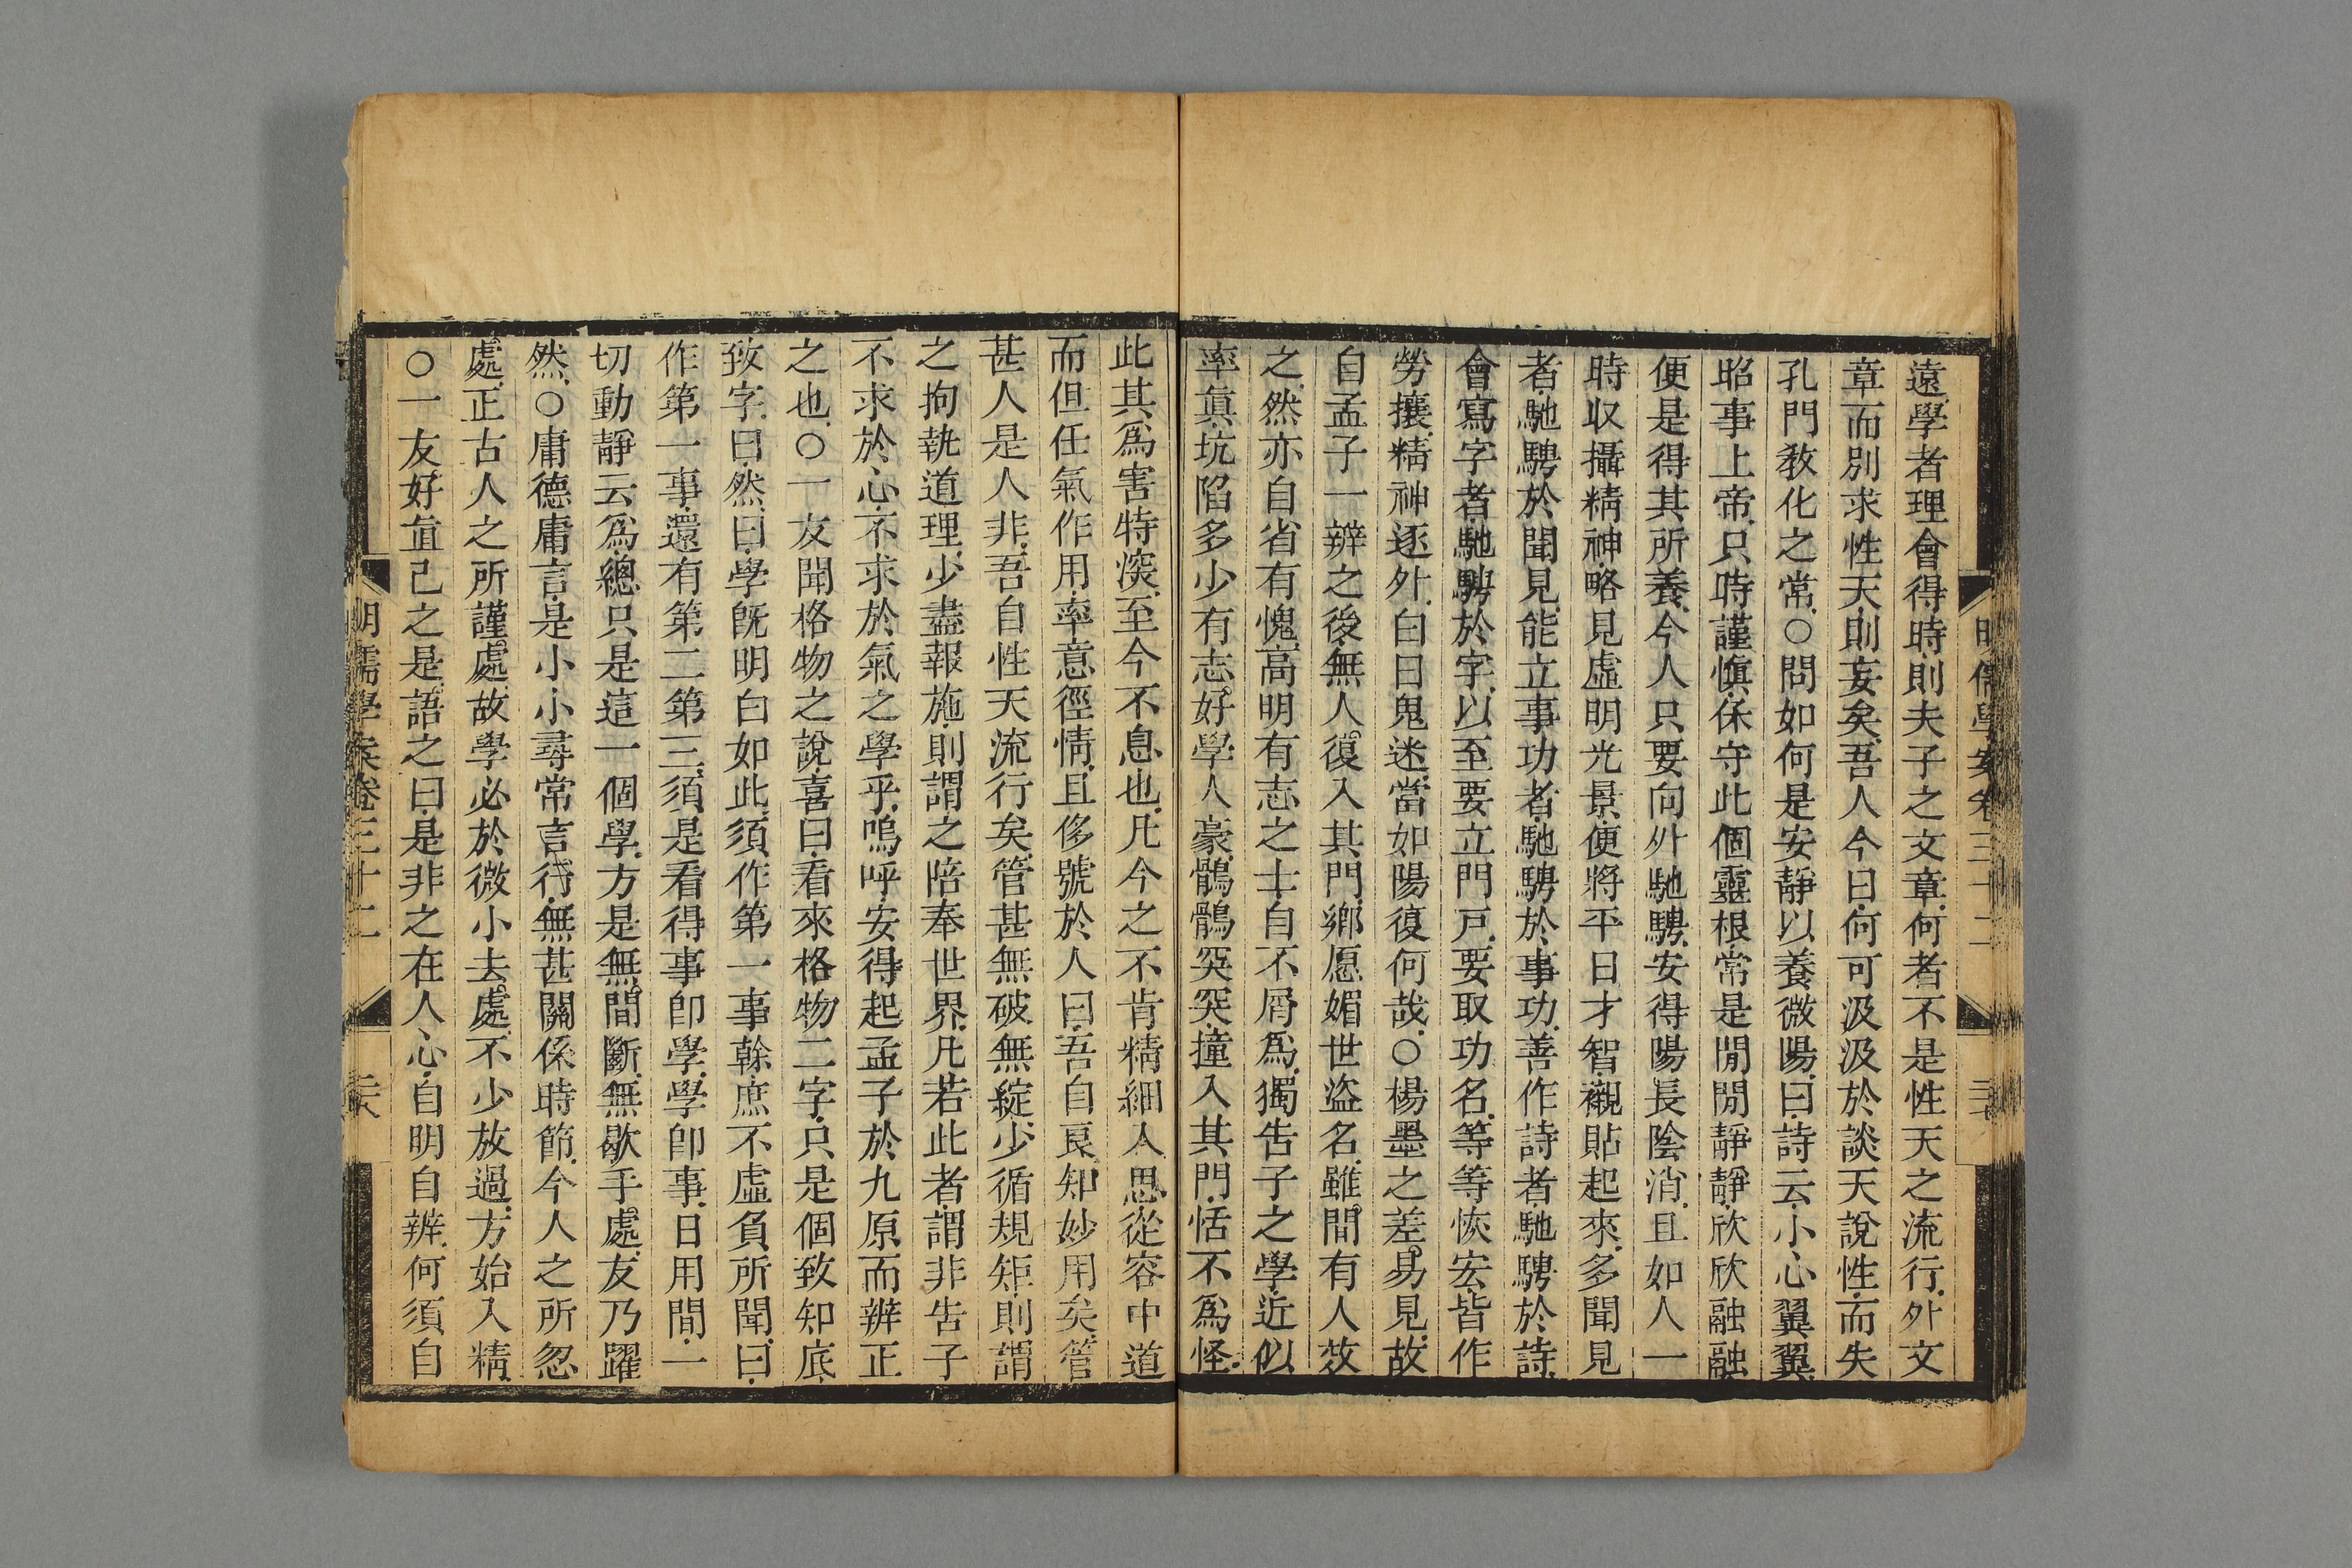 遠學者理會得時則夫子之文章何者不是性天之流行外文
章而別求性天則妄矣吾人今日何可汲汲於談天說性而失
孔門敎化之常○問如何是安靜以養微陽曰詩云小心翼翼
昭事上帝只時謹愼保守此個靈根常是閒閒靜靜欣欣融融
便是得其所養今人只要向外馳騁安得陽長陰消且如人一
時収攝精神略見虛明光景便將平日才智襯貼起來多聞見
者馳騁於聞見能立事功者馳騁於事功善作詩者馳騁於詩
會寫字者馳騁於字以至要立門戶要取功名等等恢宏皆作
勞攘精神逐外白日鬼迷當如陽復何哉○楊墨之差易見故
自孟子一辨之後無人復入其門鄕愿媚世盜名雖間有人效
之然亦自省有愧高明有志之士自不屑為獨告子之學近似
率眞坑陷多少有志好學人豪鶻鶻突突撞入其門恬不為怪
此其為害特深至今不息也凡今之不肯精細入思從容中道
而但任氣作用率意徑情且侈號於人曰吾自良知妙用矣管
甚人是人非吾自性天流行矣管甚無破無綻少循規矩則謂
之拘執道理少盡報施則謂之陪奉世界凡若此者謂非告子
不求於心不求於氣之學乎嗚呼安得起孟子於九原而辨正
之也○一友聞格物之說喜曰看來格物二字只是個致知底
致字曰然曰學旣明白如此須作第一事幹庶不虛負所聞曰
作第一事還有第二第三須是看得事卽學學卽事日用間一
切動靜云為總只是這一個學方是無間斷無歇手處友乃躍
然○庸德庸言是小小尋常言行無甚關係時節今人之所忽
處正古人之所謹處故學必於微小去處不少放過方始入精
○一友好直己之是語之曰是非之在人心自明自辨何須自
明儒學案卷三十二